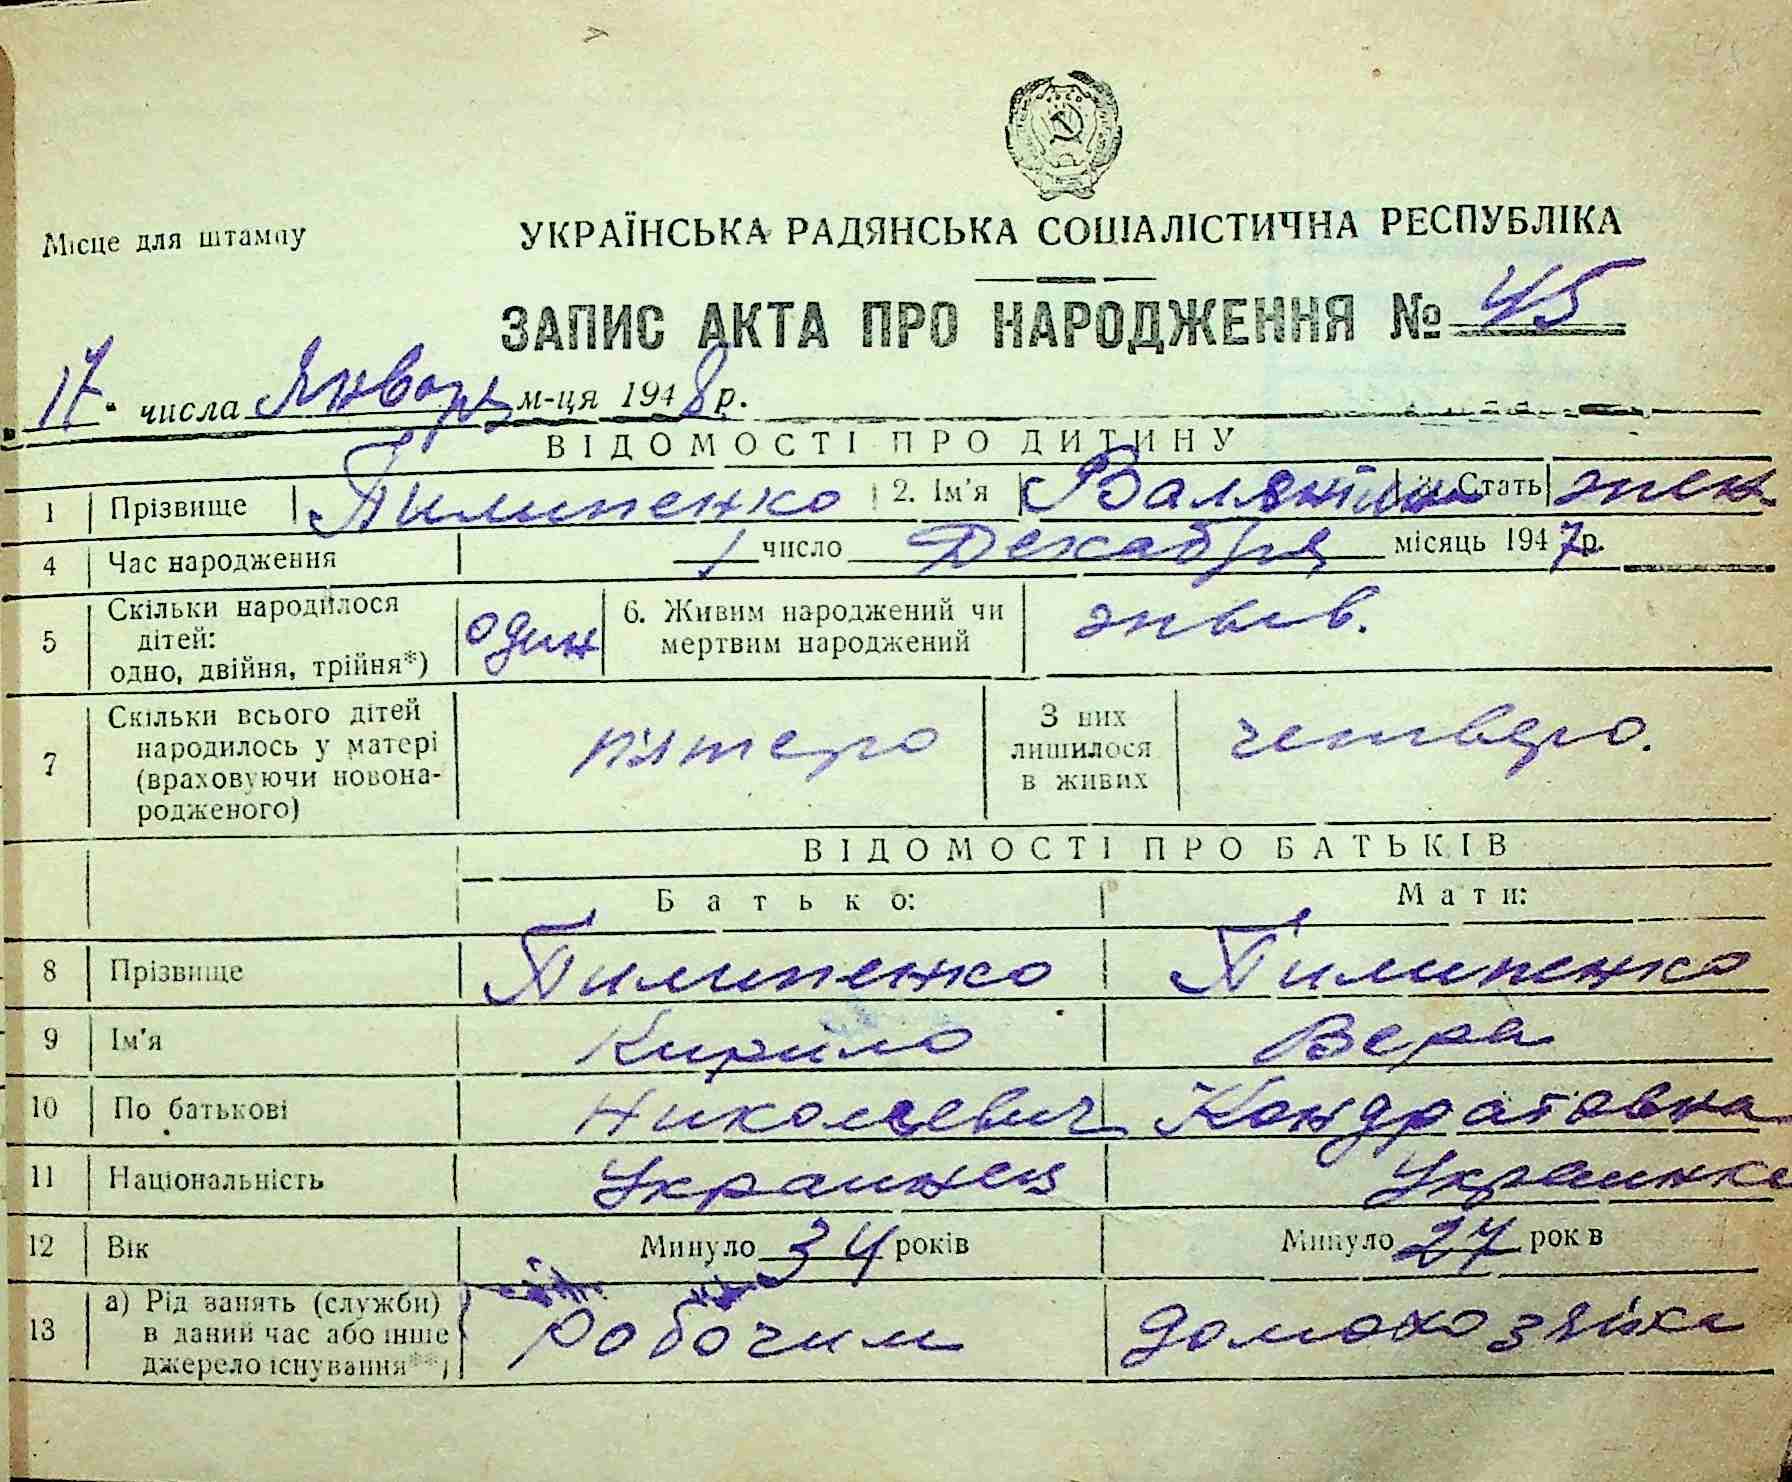 Місце для штампу
УКРАЇНСЬКА РАДЯНСЬКА СОЦІАЛІСТИЧНА РЕСПУБЛІКА
ЗАПИС АКТА ПРО НАРОДЖЕННЯ № 45
17 числа Января м-ця 1948 р.
ВІДОМОСТІ ПРО ДИТИНУ
1 Прізвище Пилипенко 2. Ім'я Валянтина 3. Стать жен.
4 Час народження 1 число Декабря місяць 1947 р.
5 Скільки народилося дітей: одно, двійня, трійня*) один 6. Живим народжений чи мертвим народжений жыв.
7 Скільки всього дітей народилось у матері (враховуючи новонародженого) пятеро З них лишилося в живих четверо.
ВІДОМОСТІ ПРО БАТЬКІВ
Батько: Мати:
8 Прізвище Пилипенко Пилипенко
9 Ім'я Кирило Вера
10 По батькові Николаевич Кондратовна
11 Національність Украинец Украинка
12 Вік Минуло 34 років Минуло 27 років
13 а) Рід занять (служби) в даний час або інше джерело існування**) Робочим домохозяйка